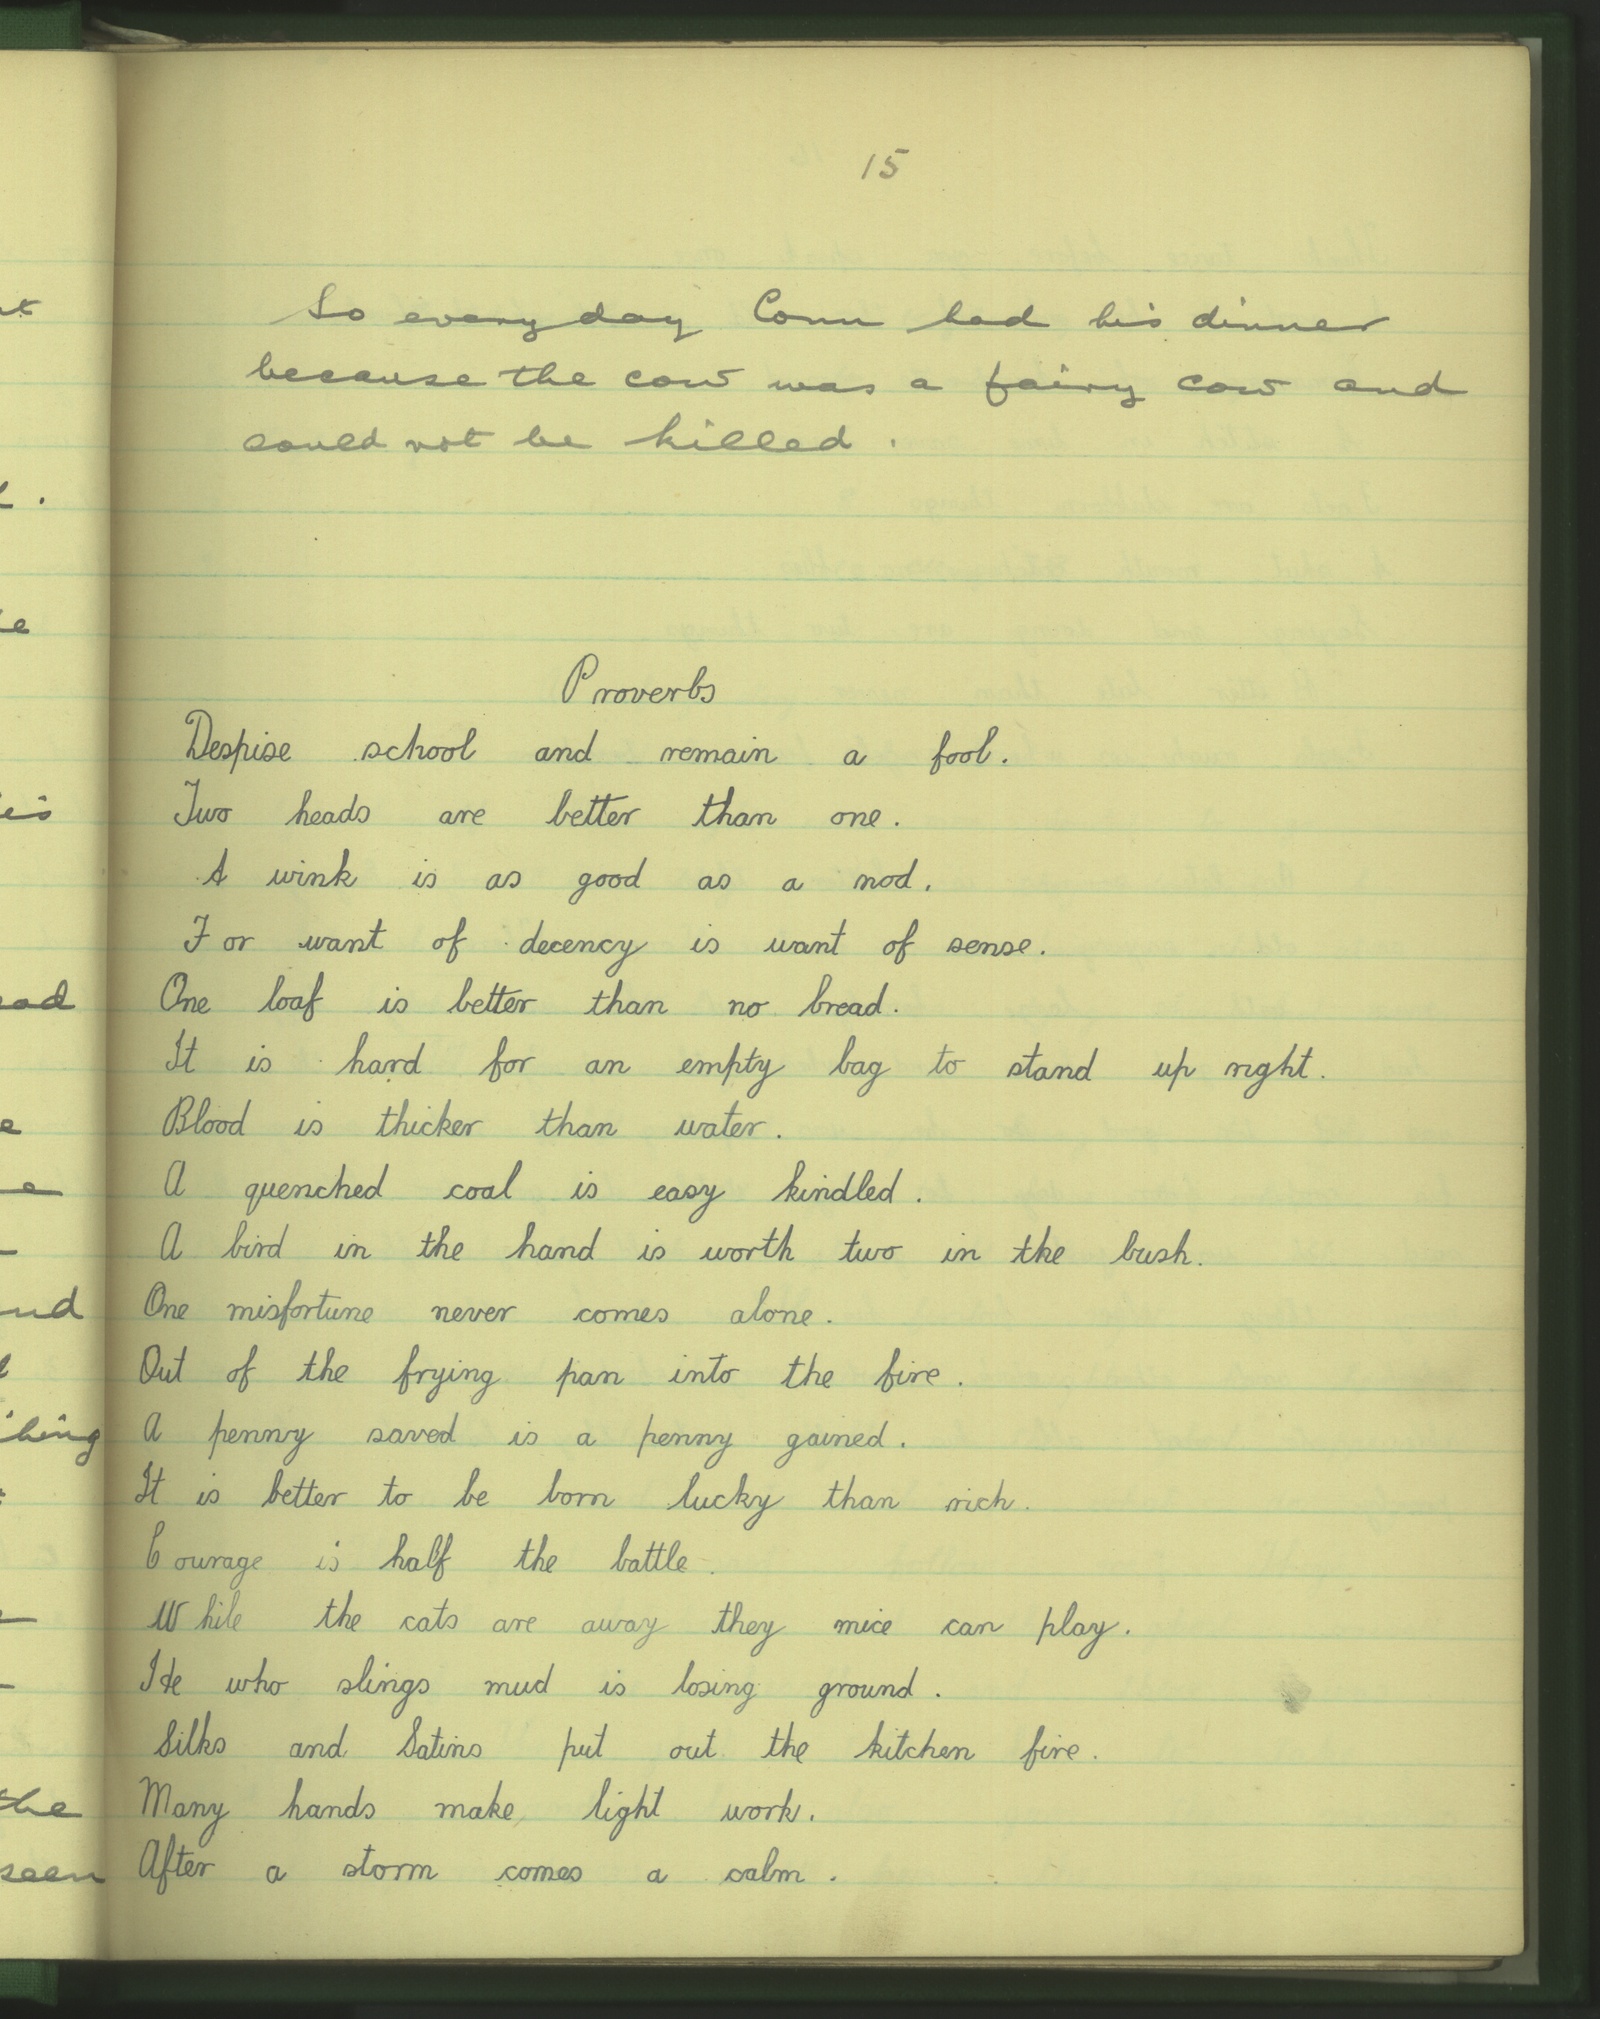 15
So every day Conn had his dinner
because the cow was a fairy cow and
could not be killed.
Proverbs
Despise school and remain a fool.
Two heads are better than one.
A wink is as good as a nod.
For want of decency is want of sense.
One loaf is better than no bread.
It is hard for an empty bag to stand up right.
Blood is thicker than water.
A quenched coal is easy kindled.
A bird in the hand is worth two in the bush.
One misfortune never comes alone.
Out of the frying pan into the fire.
A penny saved is a penny gained.
It is better to be born lucky than rich.
Courage is half the battle.
While the cats are away they mice can play.
He who slings mud is losing ground.
Silks and Satins put out the kitchen fire.
Many hands make light work.
After a storm comes a calm.